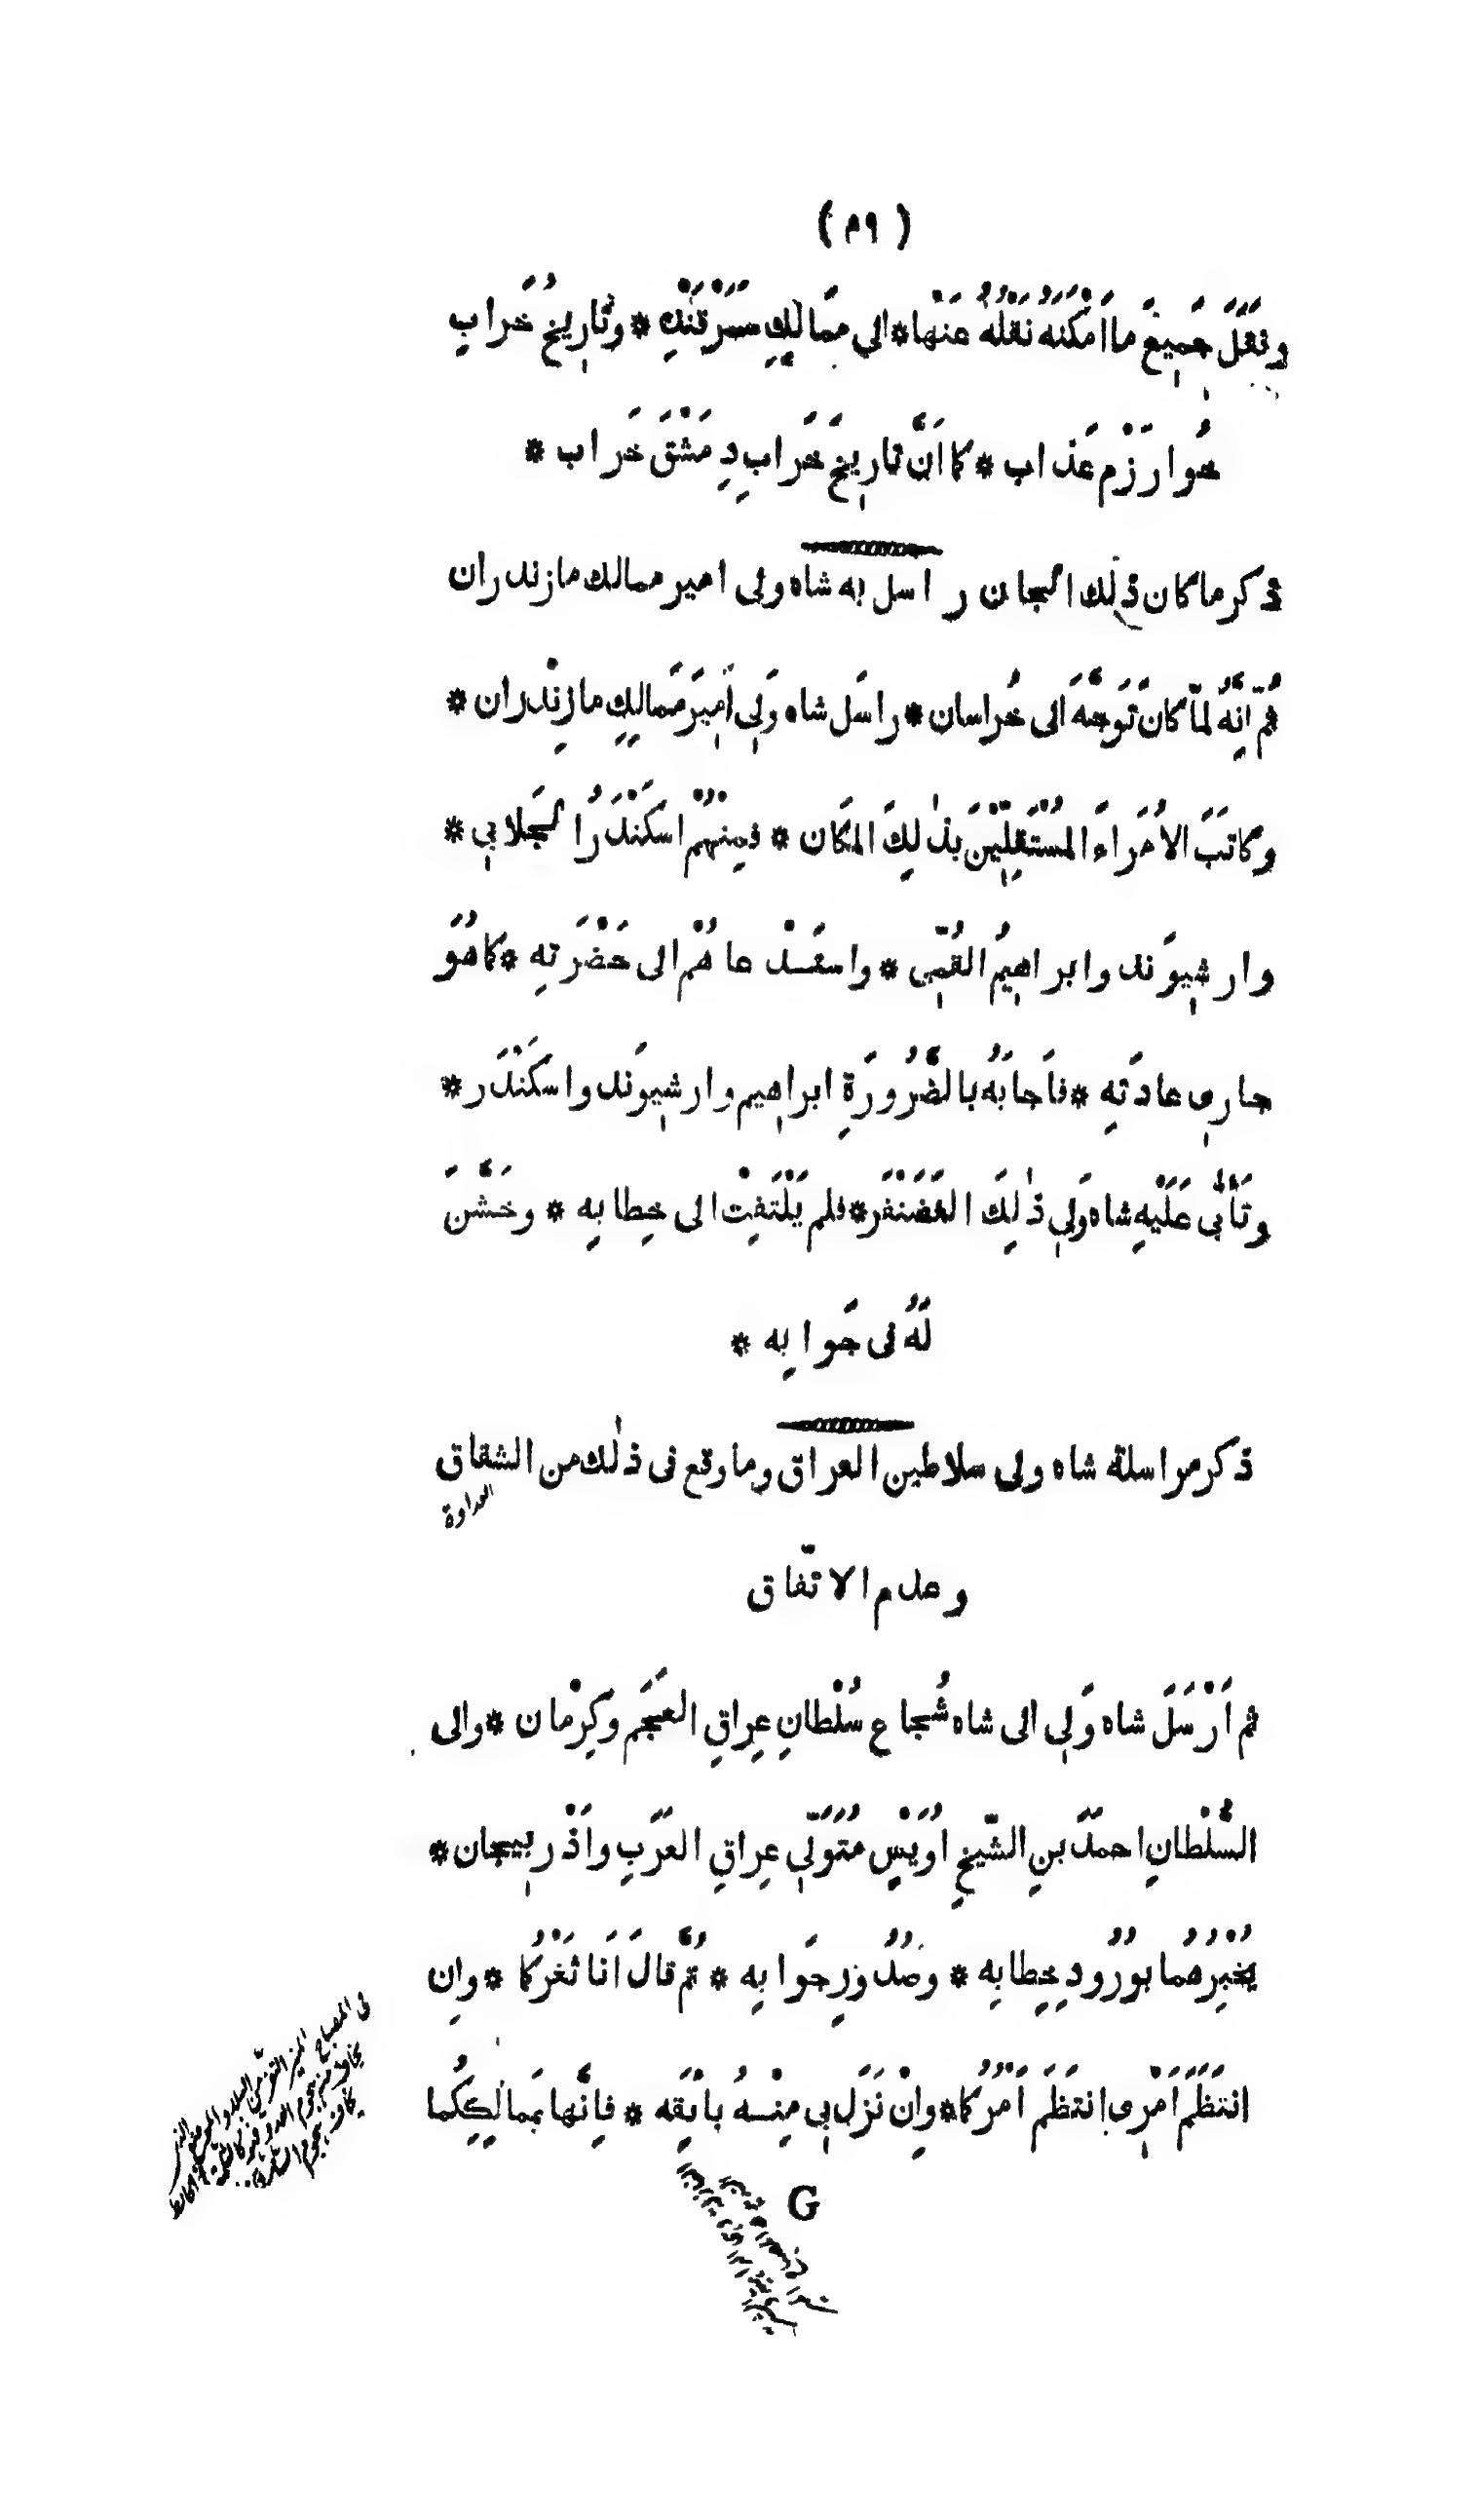 (٤٩)
ونَقَلَ جَمِيعَ ما اَمْكَنَهُ نَقْلُهُ عَنْها * الى مَمالِكِ سَمَرْقَنْدِ * وتارِيخُ خَرابِ
خُوارَزْم عَذاب * كما اَنَّ تارِيخَ خَرابِ دِمَشْقَ خَراب *
ذكر ما كان ذٰلك الجان راسل به شاه ولى امير ممالك مازندران
ثُمّ اِنَّهُ لَمّا كانَ تَوَجَّهَ الى خُراسان * راسَل شاه وَلِى اَمِيرَ مَمالِكِ مازِنْدران *
وكاتَبَ الاُمَراءَ المُسْتَقِلِّيْنَ بِذٰلِكَ المَكان * فمِنْهُمْ اسكَنْدَرُ الجَلابِى *
وارشِيوَند وابراهِيمُ القُمِّى * واستَسدْعاهُم الى حَضْرَتِهِ * كما هُوَ
جارِى عادَتِهِ * فاَجابَهُ بالضَّرُورَةِ ابراهِيم وارشِيوَند واسكَنْدَر *
وتَأَبّٰى عَلَيْهِ شاه وَلِى ذٰلِكَ الغَضَنْفَر * فلم يَلْتَفِتْ الى خِطابِهِ * وخَشَّنَ
لَهُ فى جَوابِه *
ذكر مراسلة شاه ولى سلاطين العراق وما وقع فى ذٰلك من الشقاق
العداوة
وعدم الاتّفاق
ثم اَرْسَلَ شاه وَلِى الى شاه شُجاع سُلْطانِ عِراقِ العَجَم وكِرْمان * والى
السُّلْطانِ احمَدَ بنِ الشّيخِ اُوَيْسٍ مُتَوَلِّى عِراقِ العَرَبِ واَذْرَبِيجان *
يُخْبِرُهُما بوُرُودِ خِطابِه * وصُدُورِ جَوابِهِ * ثُمَّ قالَ اَنا ثَغْرُكما * واِن
انتَظَمَ اَمْرِى انتَظَمَ اَمْرُكما * واِنْ نَزَلَ بِى مِنْسهُ بائِقَه * فاِنَّها بمَمالِكِكُما
G